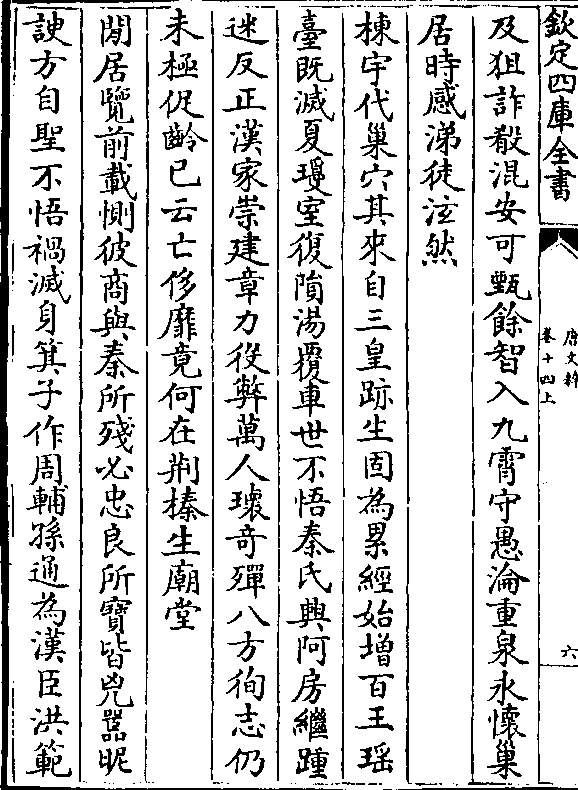 欽定四庫全書
唐文粹
卷十四上
六
及狙詐殽混安可甄餘智入九霄守愚淪重泉永懷巢
居時感涕徒泫然
棟宇代巢穴其來自三皇跡生固為累經始增百王瑶
臺既滅夏瓊室復隕湯覆車世不悟秦氏興阿房繼踵
迷反正漢家崇建章力役弊萬人瓌奇殫八方徇志仍
未極促齡已云亡侈靡竟何在荆榛生廟堂
閒居覽前載惻彼商與秦所殘必忠良所寶皆兇嚚昵
諛方自聖不悟禍滅身箕子作周輔孫通為漢臣洪範